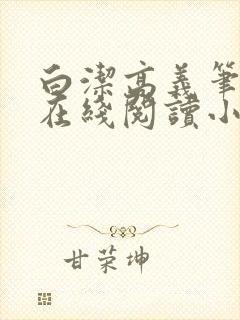 白潔高義筆
在綫閱讀小
甘荣坤